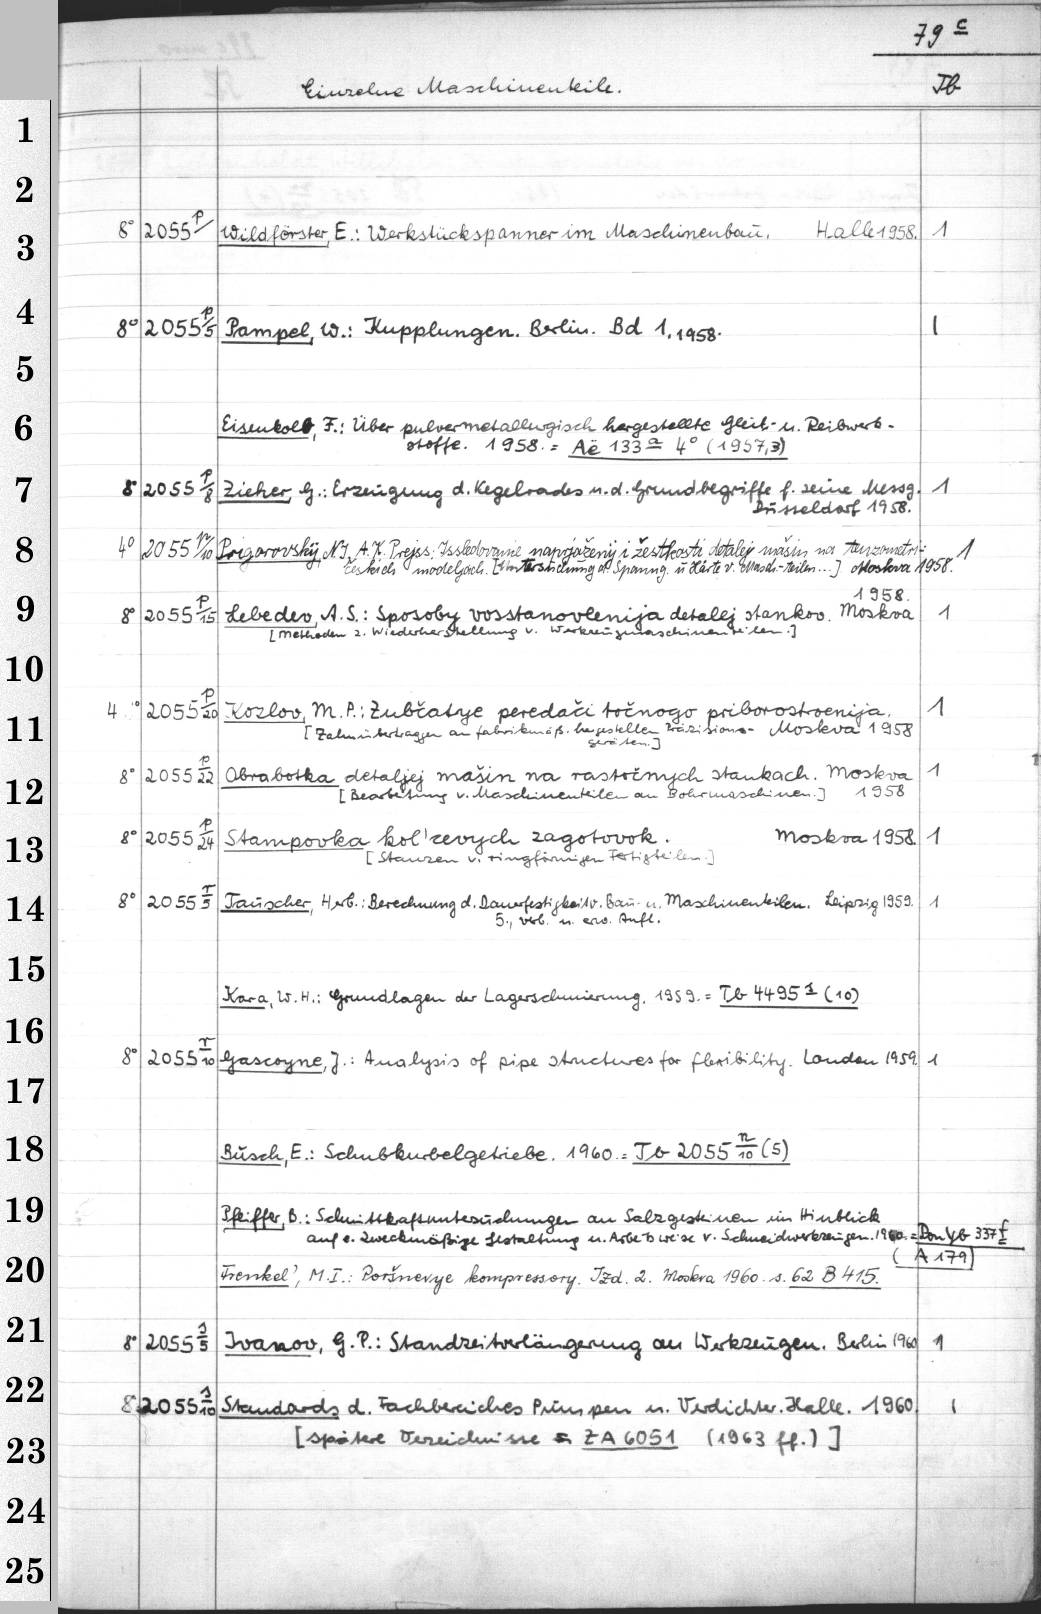 79 c
Einzelne Maschinenteile. Tb
1
2
3
8° 2055 p/ Wildförster, E.: Werkstückspanner im Maschinenbau. Halle 1958. 1
4
8° 2055 p/5 Pampel, W.: Kupplungen. Berlin. Bd 1, 1958. 1
5
6
Eisenkolb, F.: Über pulvermetallurgisch hergestellte Gleit- u. Reibwerk-
stoffe. 1958. = Aë 133 a 4° (1957,3)
7
8° 2055 p/8 Zieher, G.: Erzeugung d. Kegelrades u. d. Grundbegriffe f. seine Messg. 1
Düsseldorf 1958.
8
4° 2055 p/10 Prigorovskij, N.I., A.K. Prejss: Issledovanie naprjaženij i žestkosti detalej mašin na tenzometri- 1
českich modeljach. [Untersuchung d. Spanng. u Härte v. Masch.-teilen...] Moskva 1958.
9
1958.
8° 2055 p/15 Lebedev, A.S.: Sposoby vosstanovlenija detalej stankov. Moskva 1
[Methoden z. Wiederherstellung v. Werkzeugmaschinenteilen.]
10
11
4° 2055 p/20 Kozlov, M.P.: Zubčatye peredači točnogo priborostroenija. 1
[Zahnübertraggn an fabrikmäß. hergestellen Präzisions- Moskva 1958
geräten.]
12
8° 2055 p/22 Obrabotka detaljej mašin na rastočnych stankach. Moskva 1
[Bearbeitung v. Maschinenteilen an Bohrmaschinen.] 1958
13
8° 2055 p/24 Stampovka kol'cevych zagotovok. Moskva 1958. 1
[Stanzen v. ringförmigen Fertigteilen.]
14
8° 2055 r/5 Tauscher, Herb.: Berechnung d. Dauerfestigkeit v. Bau- u. Maschinenteilen. Leipzig 1959. 1
5., verb. u. erw. Aufl.
15
16
Kara, W.H.: Grundlagen der Lagerschmierung. 1959. = Tb 4495 s (10)
8° 2055 r/10 Gascoyne, J.: Analysis of pipe structures for flexibility. London 1959. 1
17
18
Busch, E.: Schubkurbelgetriebe. 1960. = Tb 2055 n/10 (5)
19
Pfeiffer, B.: Schnittkraftuntersuchungen an Salzgesteinen im Hinblick
auf e. zweckmäßige Gestaltung u. Arbeitsweise v. Schneidwerkzeugen. 1960. = Bon Yb 337 f
(A 179)
20
Frenkel', M.I.: Poršnevye kompressory. Izd. 2. Moskva 1960. s. 62 B 415.
21
8° 2055 s/5 Ivanov, G.P.: Standzeitverlängerung an Werkzeugen. Berlin 1960 1
22
8° 2055 s/10 Standards d. Fachbereiches Pumpen u. Verdichter. Halle. 1960. 1
23
[spätere Verzeichnisse = ZA 6051 (1963 ff.)]
24
25